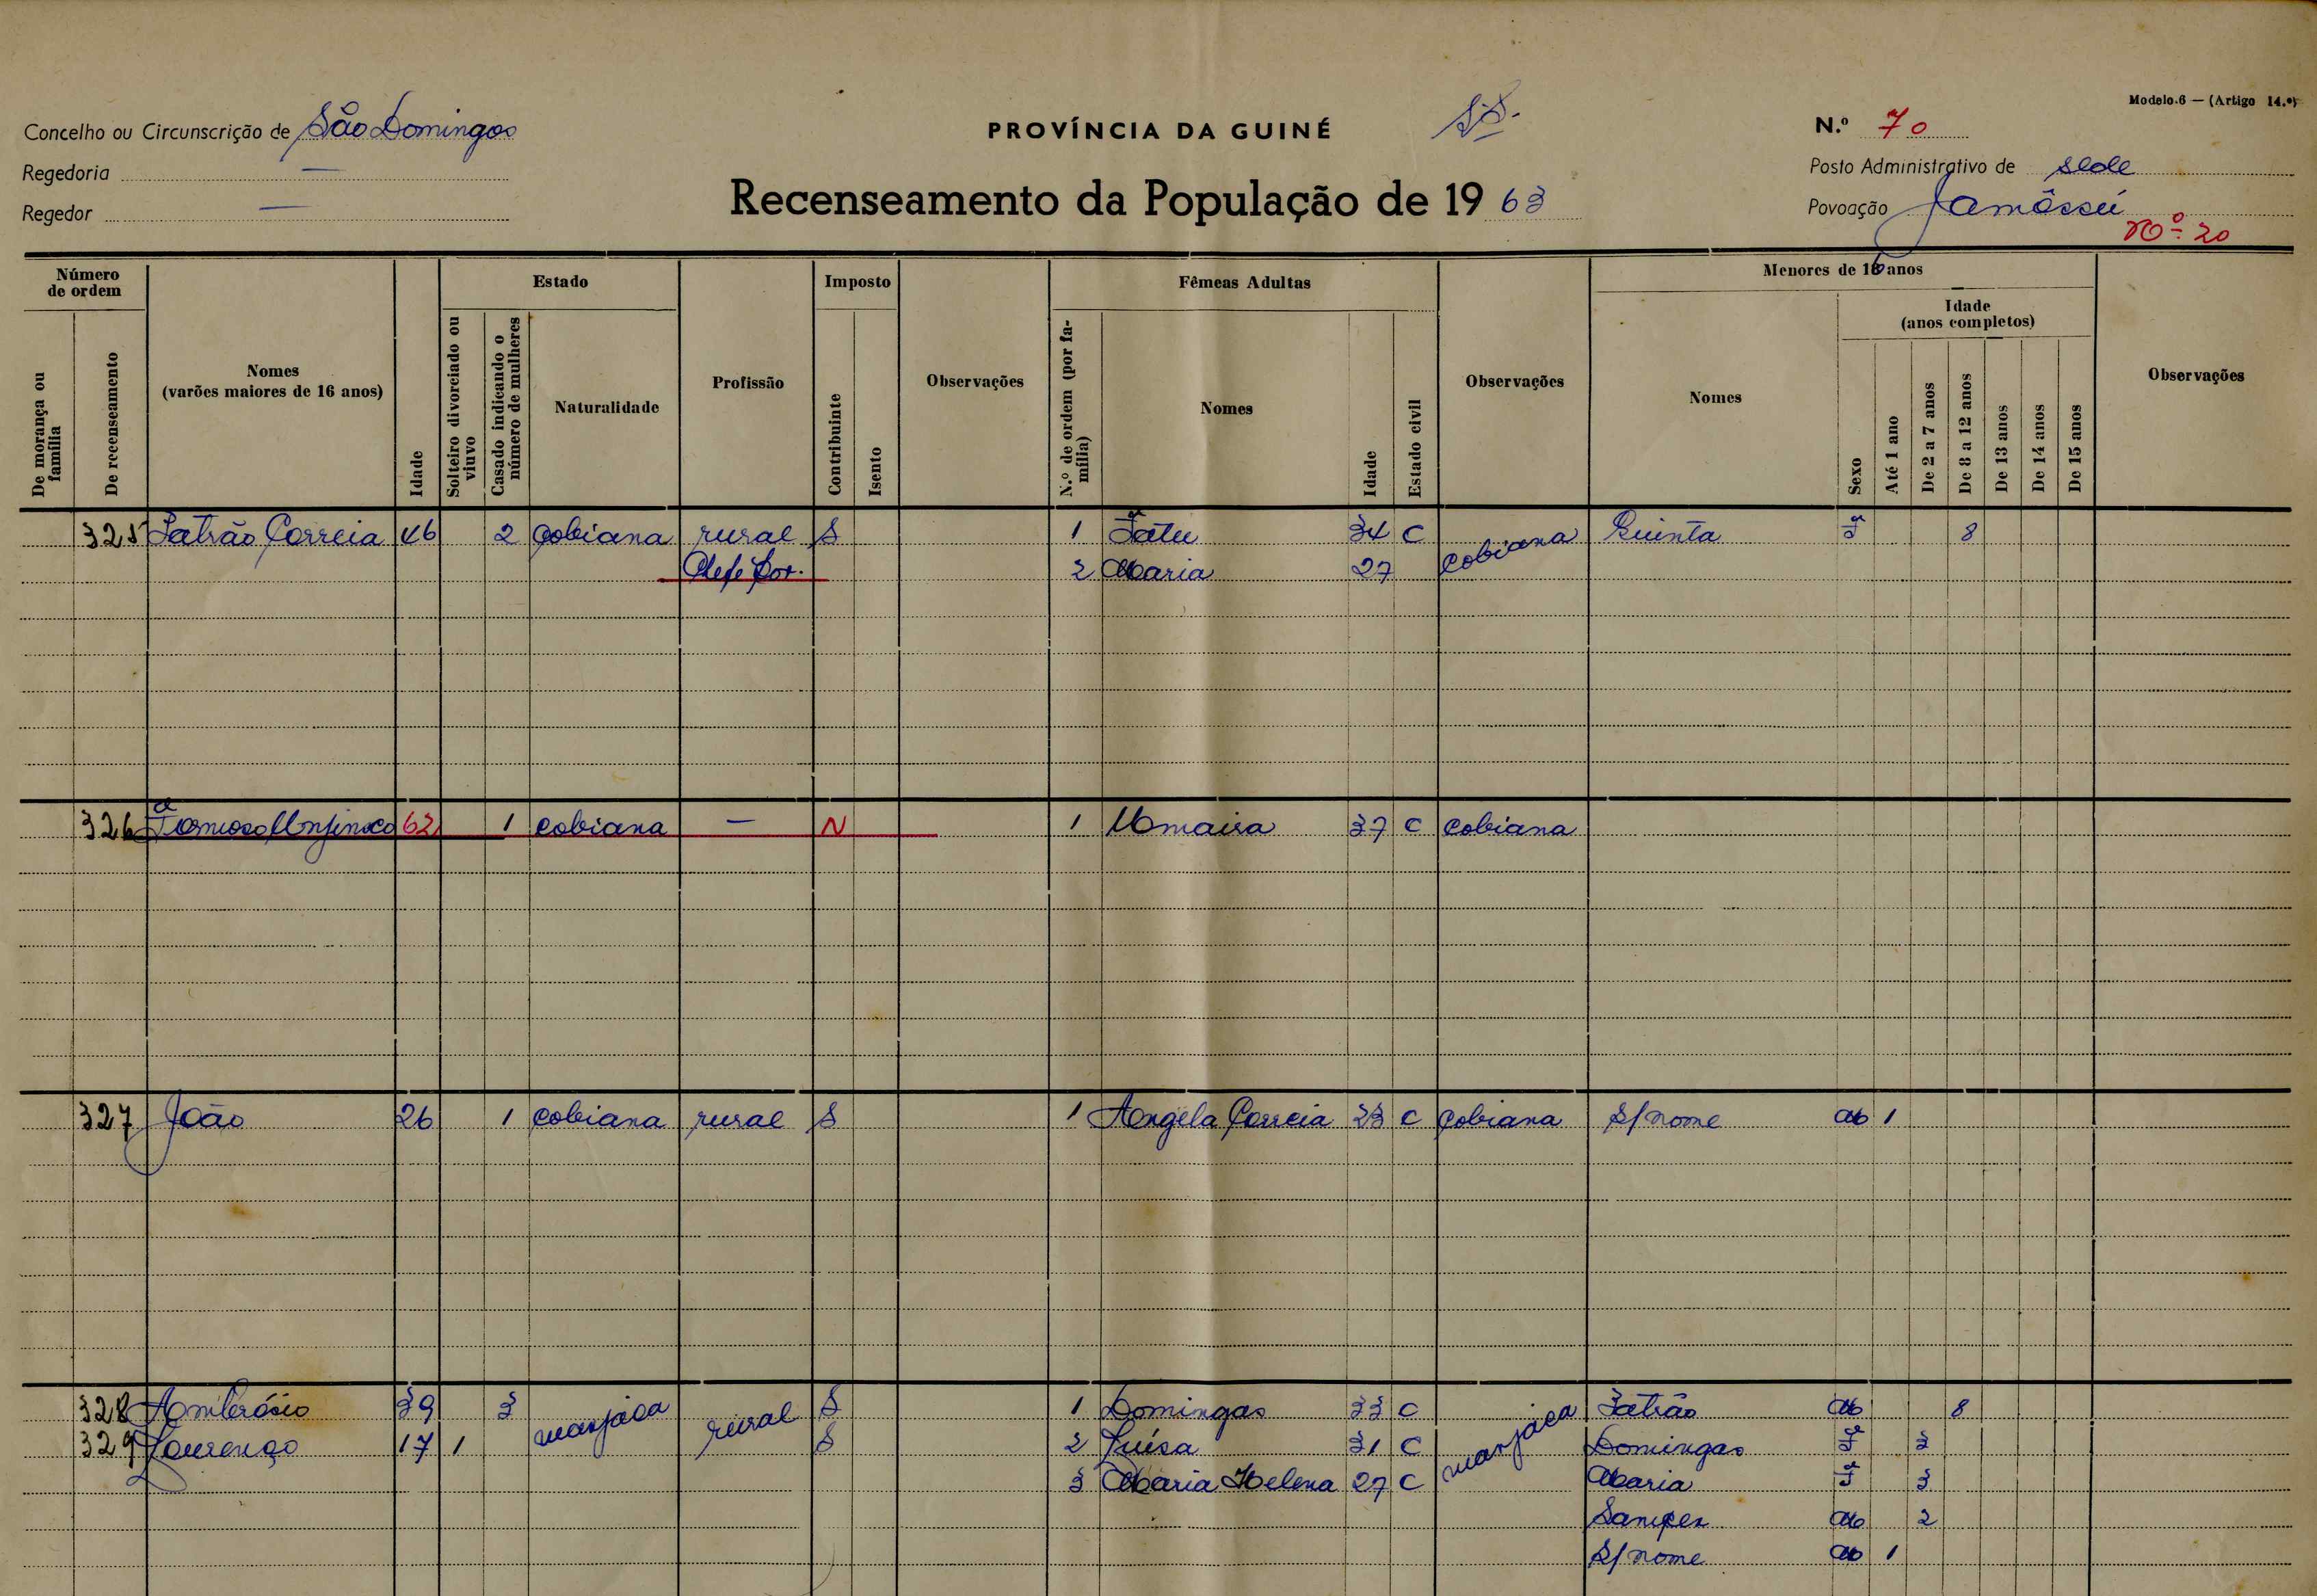 Modelo 6 — (Artigo 14.º)
Concelho ou Circunscrição de São Domingos
PROVÍNCIA DA GUINÉ
N.º 70
Regedoria —
Posto Administrativo de sede
Regedor —
Recenseamento da População de 1963
Povoação Jamêssú
Nº 20
Número de ordem
De morança ou família
De recenseamento
Nomes
(varões maiores de 16 anos)
Idade
Estado
Solteiro divorciado ou viuvo
Casado indicando o número de mulheres
Naturalidade
Profissão
Imposto
Contribuinte
Isento
Observações
Fêmeas Adultas
N.º de ordem (por família)
Nomes
Idade
Estado civil
Observações
Menores de 16 anos
Nomes
Sexo
Idade
(anos completos)
Até 1 ano
De 2 a 7 anos
De 8 a 12 anos
De 13 anos
De 14 anos
De 15 anos
Observações
325 Patrão Correia 46 2 cobiana rural S 1 Fátu 34 C cobiana Quinta F 8
Chefe Pov. 2 Maria 27
326 62 1 cobiana — N 1 37 C cobiana
327 João 26 1 cobiana rural S 1 Angela Correia 23 C cobiana S/nome M 1
328 Ambrósio 39 3 manjaca rural S 1 Domingas 33 C manjaca Patrão M 8
329 Lourenço 17 1 S 2 Luísa 31 C Domingas F 3
3 Maria Helena 27 C Maria F 3
M 2
S/nome M 1